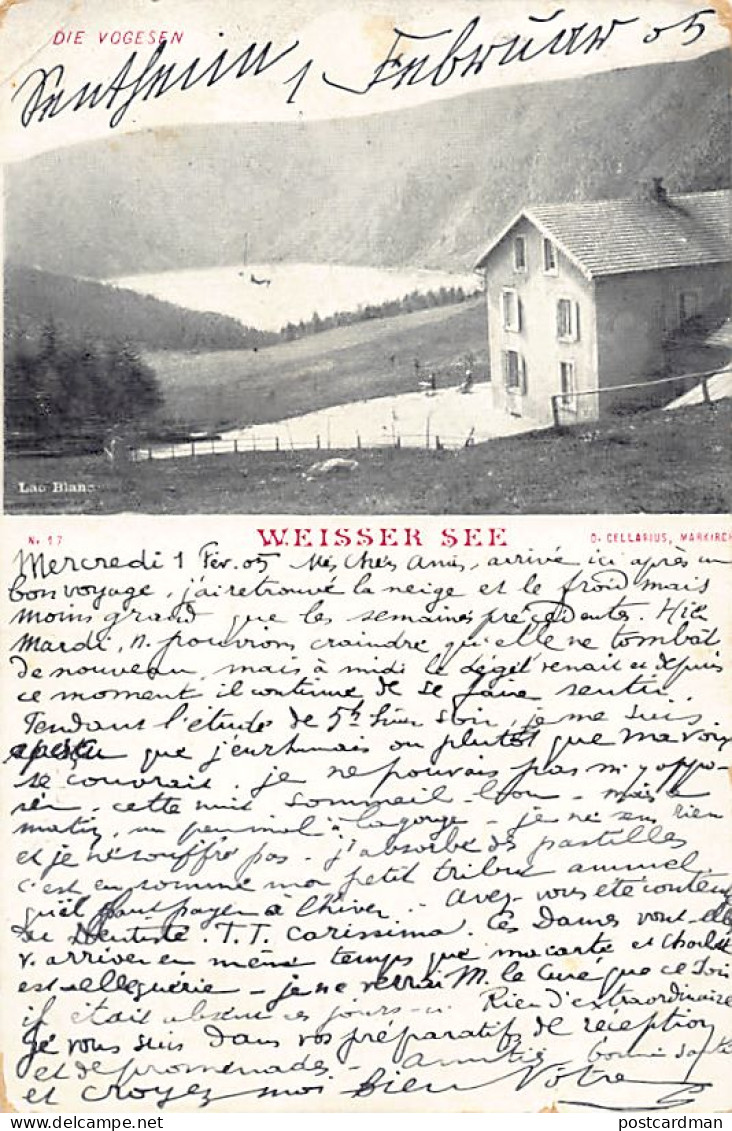 DIE VOGESEN
Sentheim 1 Februar 05
Lac Blanc
Nr 17 WEISSER SEE O. CELLARIUS, MARKIRCH
Mercredi 1 Fév. 05 Mes Chers Amis, arrivé ici après un
bon voyage, j'ai retrouvé la neige et le froid mais
moins grand que les semaines précédentes. Hier
Mardi, n. pouvions craindre qu'elle ne tombât
de nouveau, mais à midi le dégel venait et depuis
ce moment il continue de se faire sentir.
Pendant l'étude de 5h hier soir, je me suis
que j'enrhumais ou plutôt que ma voix
se couvrait, je ne pouvais pas m'y oppo-
ser, cette nuit sommeil bon - mais ce
matin, un peu mal à la gorge - je ne sens rien
et je ne souffre pas - j'absorbe des pastilles
c'est en somme mon petit tribut annuel
qu'il faut payer à l'hiver - Avez-vous été contente
du Dentiste. T. T. carissima. Ces Dames vont-elles
v. arriver en même temps que ma carte et
est-elle guérie - je ne verrai M. le Curé que ce soir
il était absent ces jours-ci Rien d'extraordinaire
je vous suis dans vos préparatifs de réception
et de promenades - Amitiés bonne santé
et croyez moi bien Vôtre
postcardman